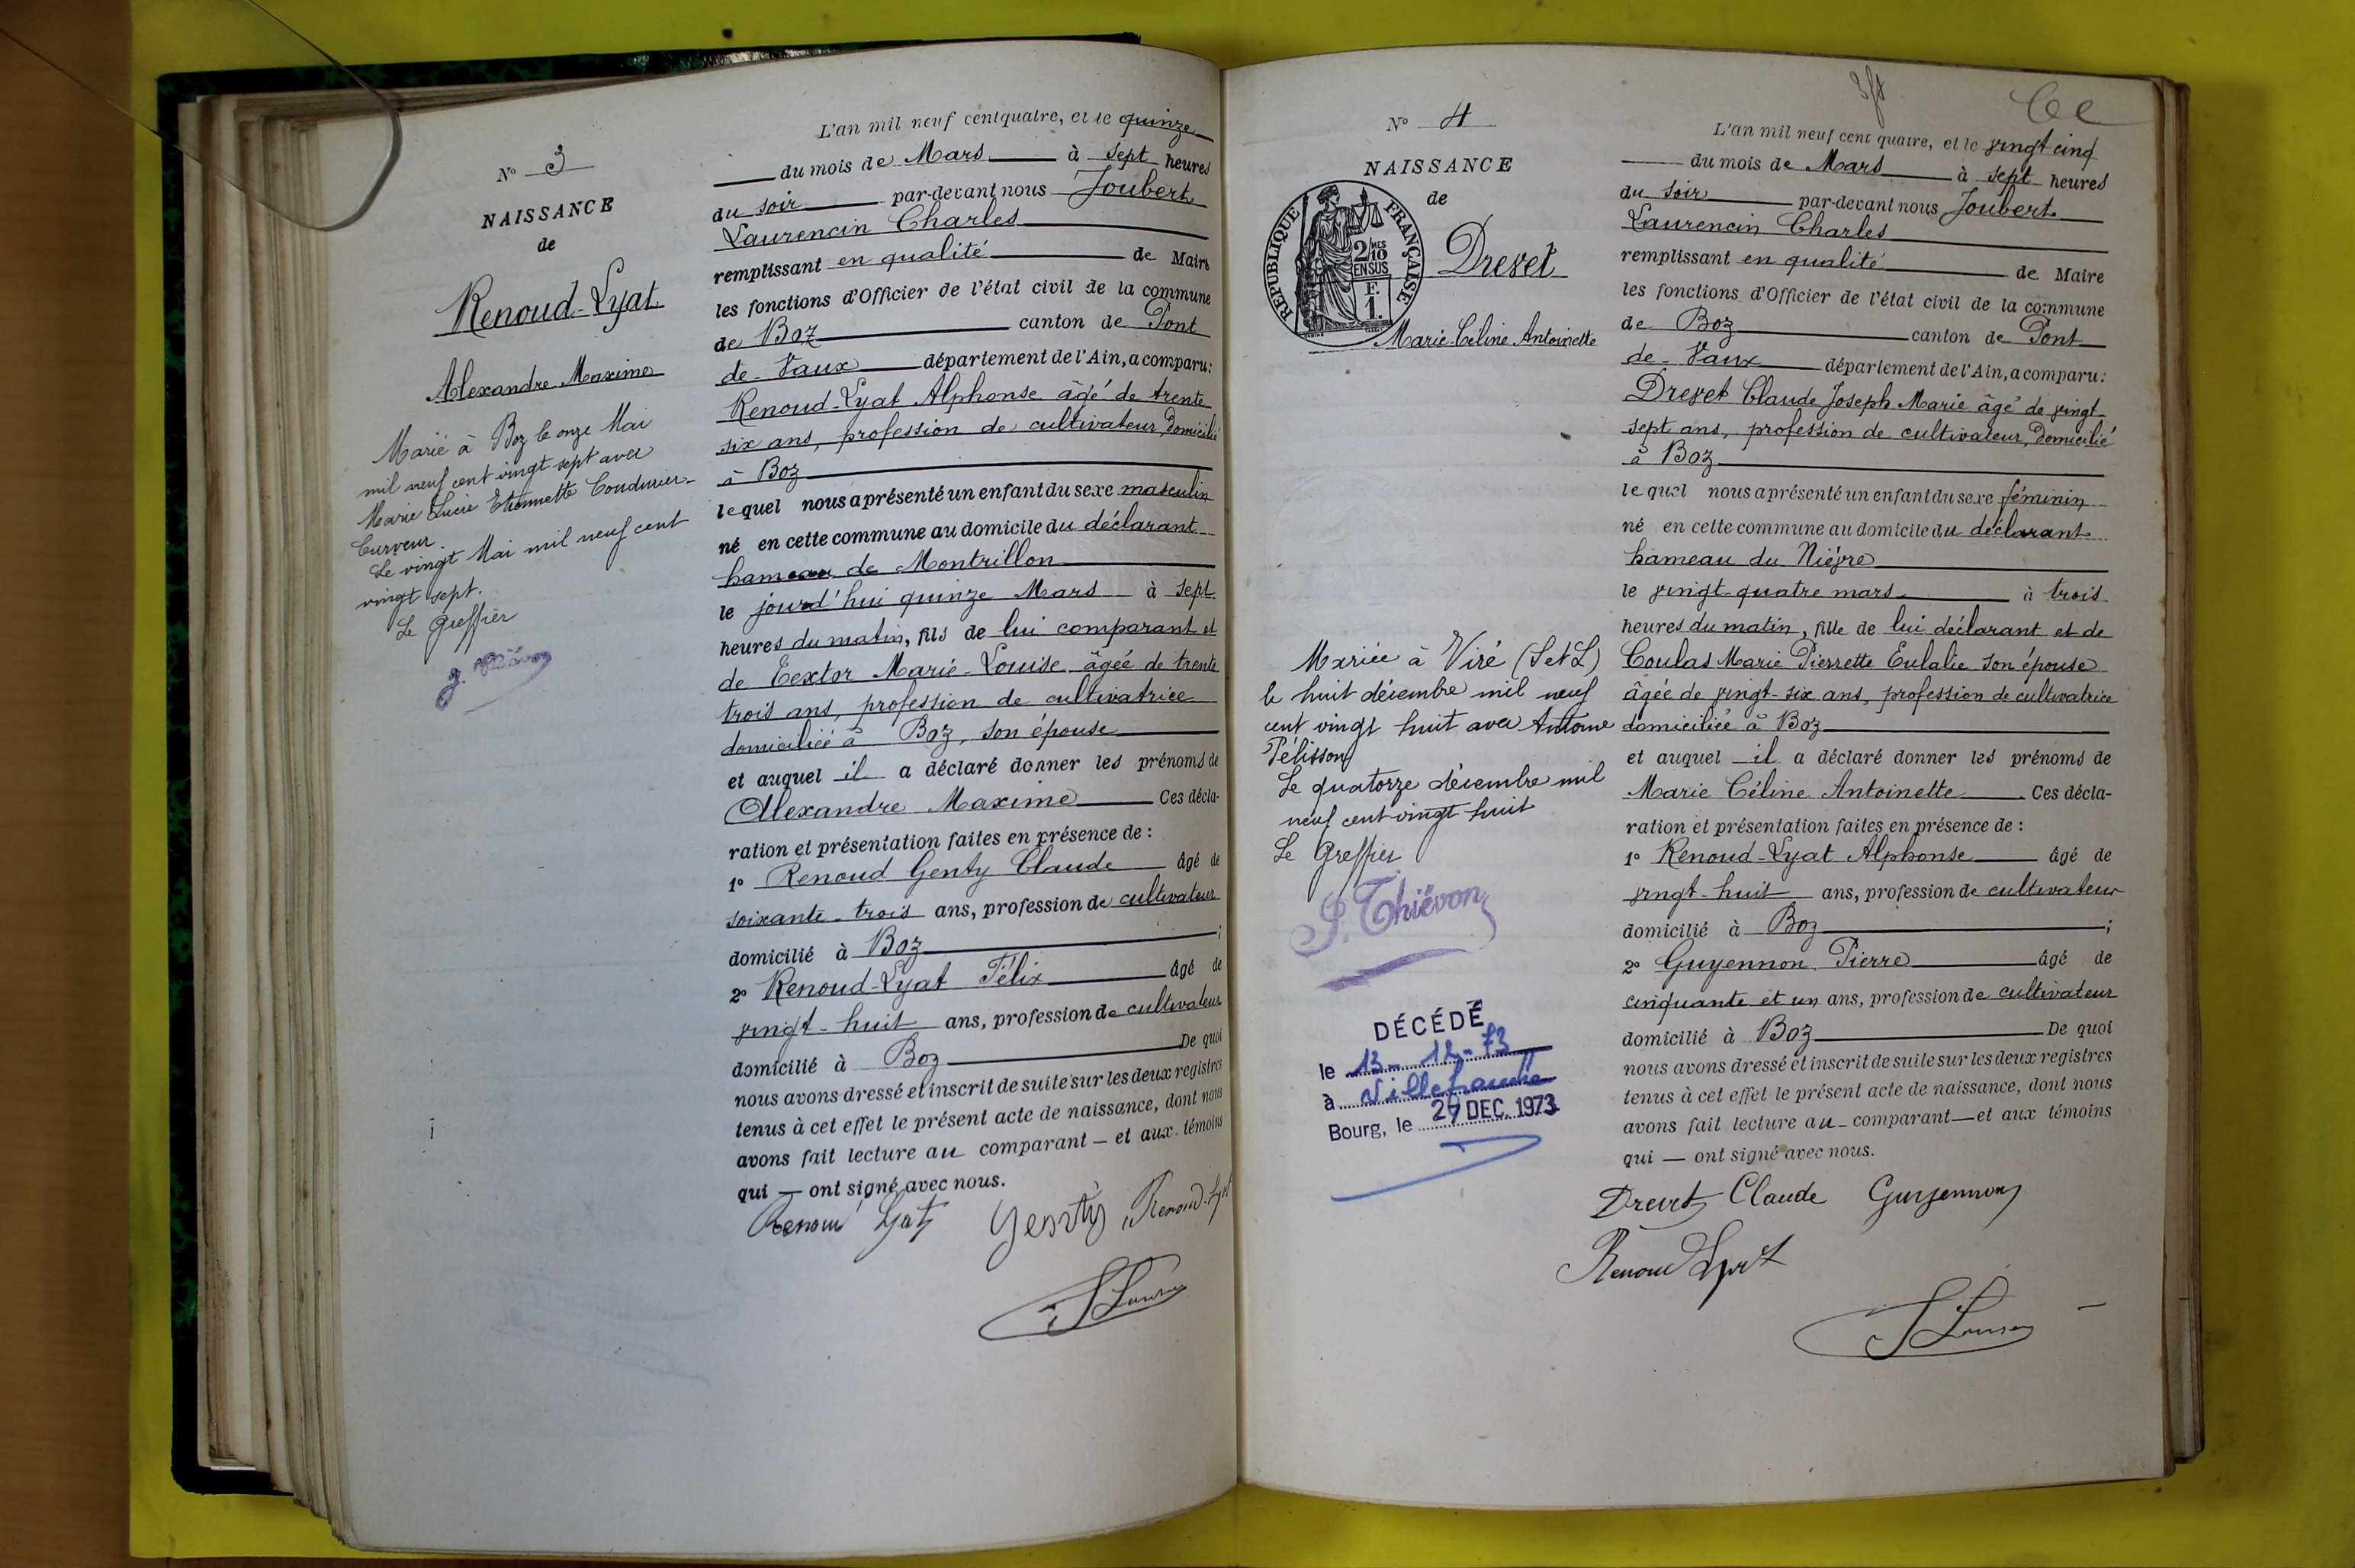 N° 3
NAISSANCE
de
Renoud-Lyat
Alexandre Maxime
Marié à Boz le onze Mai
mil neuf cent vingt sept avec
Marie Lucie Etiennette Coudurier-
Curveur.
Le vingt Mai mil neuf cent
vingt sept.
Le Greffier
L'an mil neuf cent quatre, et le quinze
du mois de Mars à sept heures
du soir par-devant nous Joubert
Laurencin Charles
remplissant en qualité de Maire
les fonctions d'Officier de l'état civil de la commune
de Boz canton de Pont
de-Vaux département de l'Ain, a comparu:
Renoud-Lyat Alphonse âgé de trente
six ans, profession de cultivateur, domicilié
à Boz
lequel nous a présenté un enfant du sexe masculin
né en cette commune au domicile du déclarant
hameau de Montrillon
le jourd'hui quinze Mars à sept
heures du matin, fils de lui comparant et
de Textor Marie-Louise âgée de trente
trois ans, profession de cultivatrice
domiciliée à Boz, son épouse
et auquel il a déclaré donner les prénoms de
Alexandre Maxime Ces décla-
ration et présentation faites en présence de :
1° Renoud Genty Claude âgé de
soixante-trois ans, profession de cultivateur
domicilié à Boz ;
2° Renoud-Lyat Félix âgé de
vingt-huit ans, profession de cultivateur
domicilié à Boz De quoi
nous avons dressé et inscrit de suite sur les deux registres
tenus à cet effet le présent acte de naissance, dont nous
avons fait lecture au comparant — et aux témoins
qui — ont signé avec nous.
Renoud Lyat Genty Renoud-Lyat
N° 4
NAISSANCE
de
REPUBLIQUE FRANÇAISE
2/10 MES
EN SUS
F.
1.
Drevet
Marie-Céline Antoinette
Mariée à Viré (S et L)
le huit décembre mil neuf
cent vingt huit avec Antoine
Pélisson
Le quatorze décembre mil
neuf cent vingt huit
Le Greffier
P. Thiévon
DÉCÉDÉ
le 13-12-73
à Villefranche
Bourg, le 27 DEC. 1973
L'an mil neuf cent quatre, et le vingt cinq
du mois de Mars à sept heures
du soir par-devant nous Joubert
Laurencin Charles
remplissant en qualité de Maire
les fonctions d'Officier de l'état civil de la commune
de Boz canton de Pont
de-Vaux département de l'Ain, a comparu:
Drevet Claude Joseph Marie âgé de vingt
sept ans, profession de cultivateur, domicilié
à Boz
lequel nous a présenté un enfant du sexe féminin
né en cette commune au domicile du déclarant
hameau du Nièvre
le vingt-quatre mars à trois
heures du matin, fille de lui déclarant et de
Coulas Marie Pierrette Eulalie son épouse
âgée de vingt-six ans, profession de cultivatrice
domiciliée à Boz
et auquel il a déclaré donner les prénoms de
Marie Céline Antoinette Ces décla-
ration et présentation faites en présence de :
1° Renoud-Lyat Alphonse âgé de
vingt-huit ans, profession de cultivateur
domicilié à Boz ;
2° Guyennon Pierre âgé de
cinquante et un ans, profession de cultivateur
domicilié à Boz De quoi
nous avons dressé et inscrit de suite sur les deux registres
tenus à cet effet le présent acte de naissance, dont nous
avons fait lecture au comparant — et aux témoins
qui — ont signé avec nous.
Drevet Claude Guyennon
Renoud Lyat